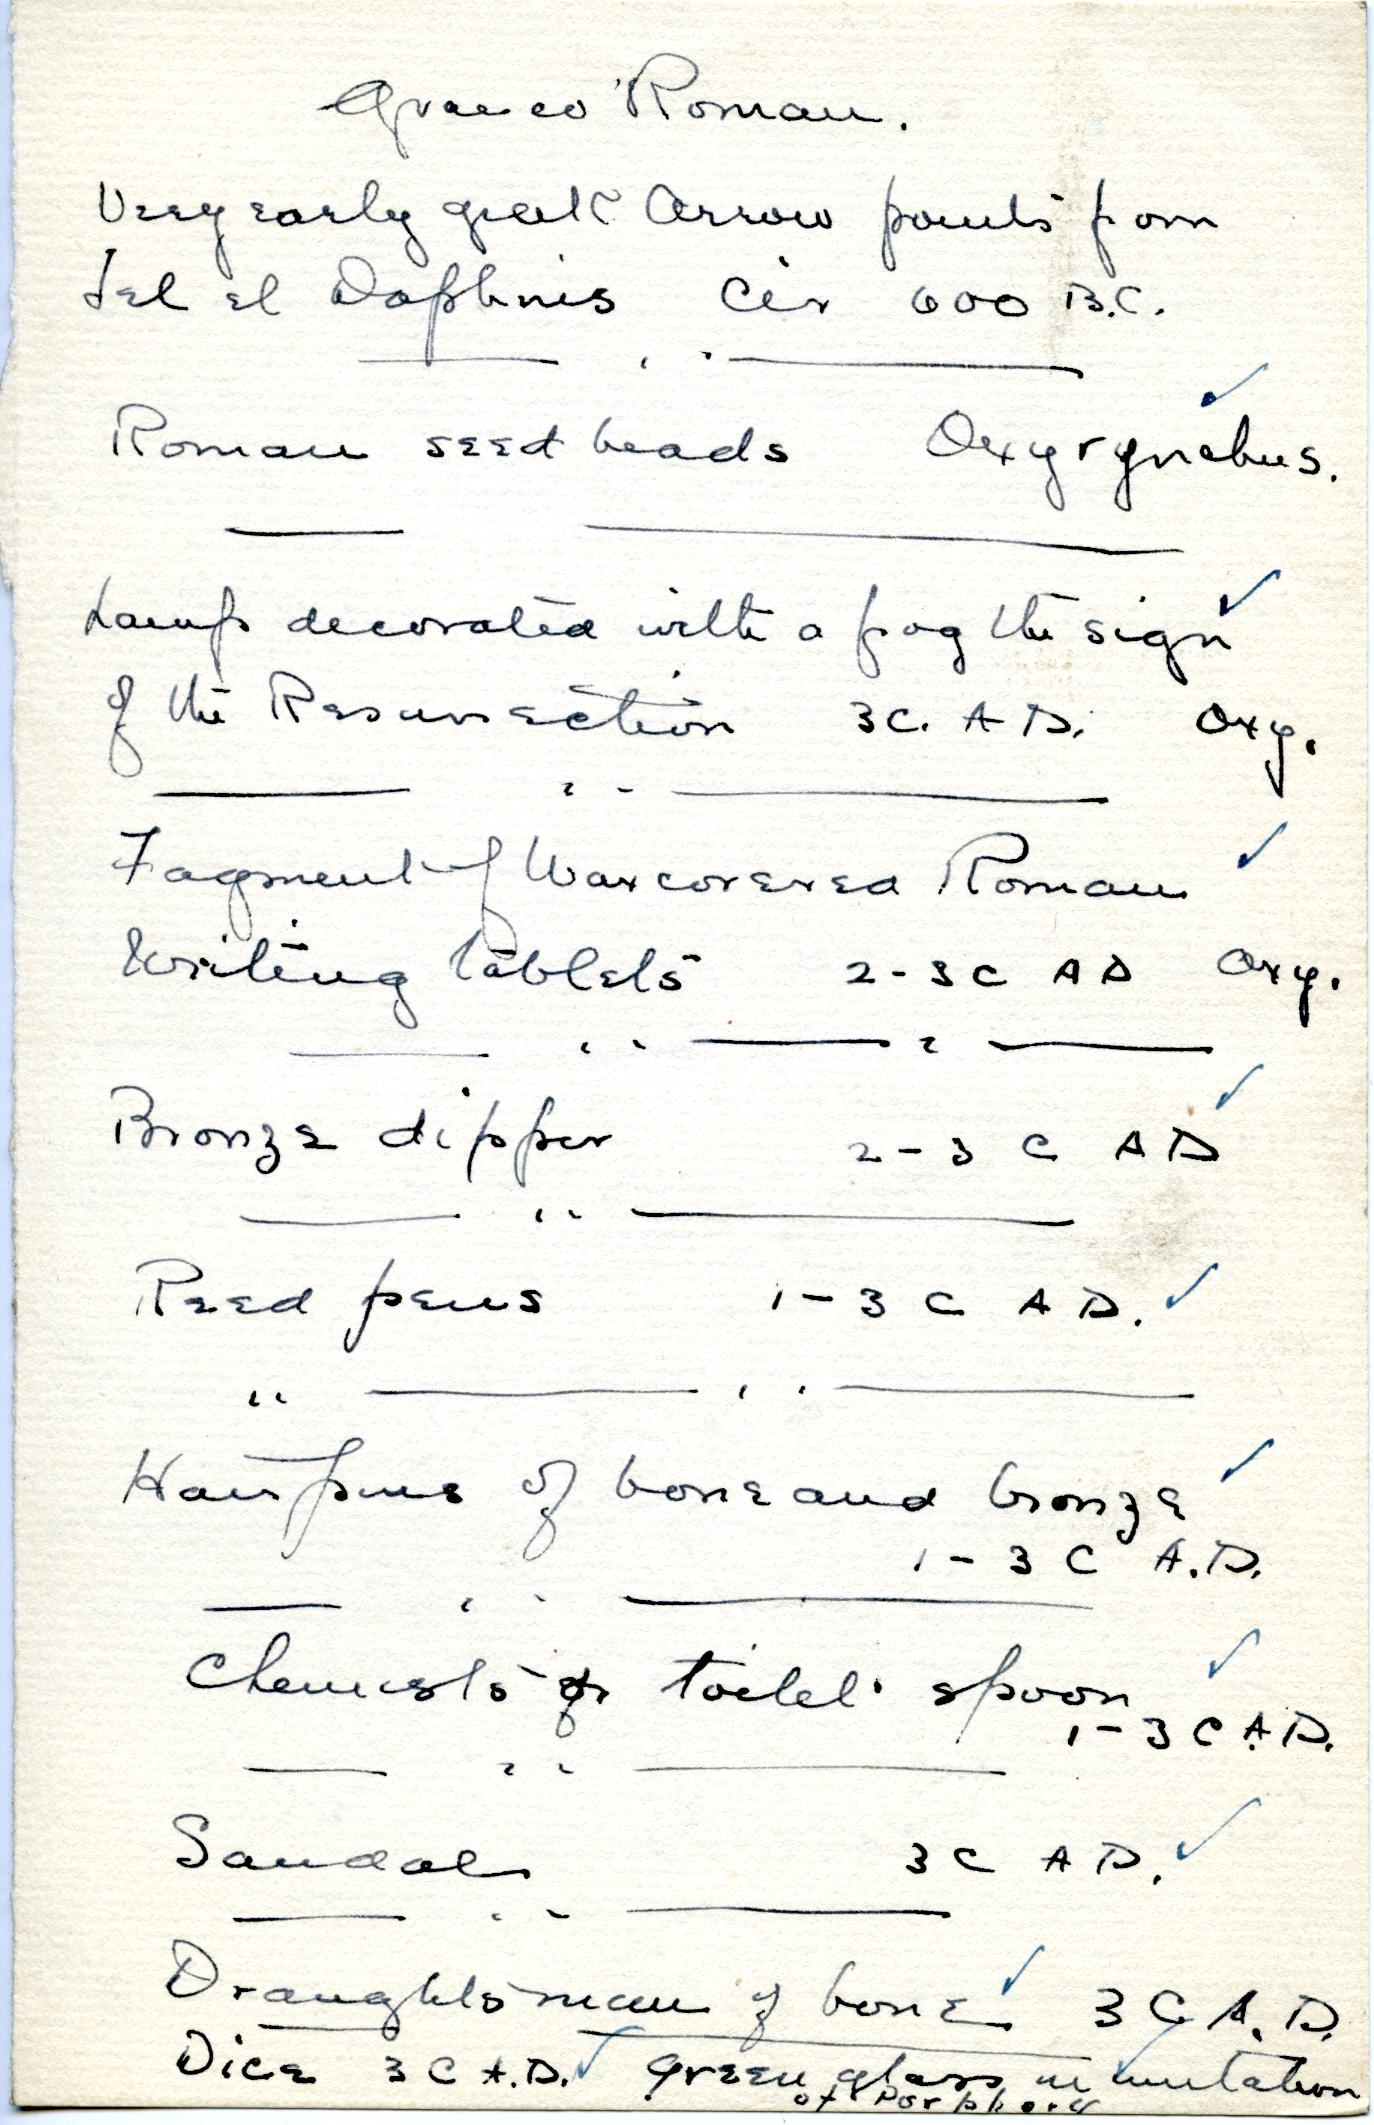 Graeco Roman.
Very early greek Arrow points from
Tel el Daphnis Cir 600 B.C.
Roman seed beads Oxyrynchus.
Lamp decorated with a frog the sign
of the Resurrection 3C. A D. Oxy.
Fragment of Wax covered Roman
Writing tablets 2-3 C A D Oxy.
Bronze dipper 2-3 C A D
Reed pens 1-3 C A D.
Hair pins of bone and bronze
1-3 C A.D.
Chemists or toilet spoon
1-3 C A.D.
Sandals 3 C A D.
Draughtsman of bone 3 C A. D.
Dice 3 C A.D. green glass in imitation
of Porphory